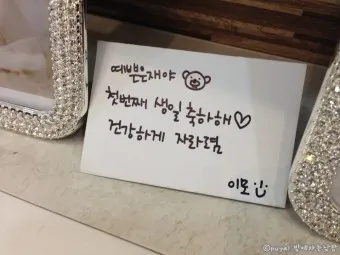 예쁜은재야
첫번째 생일 축하해♡
건강하게 자라렴
이모